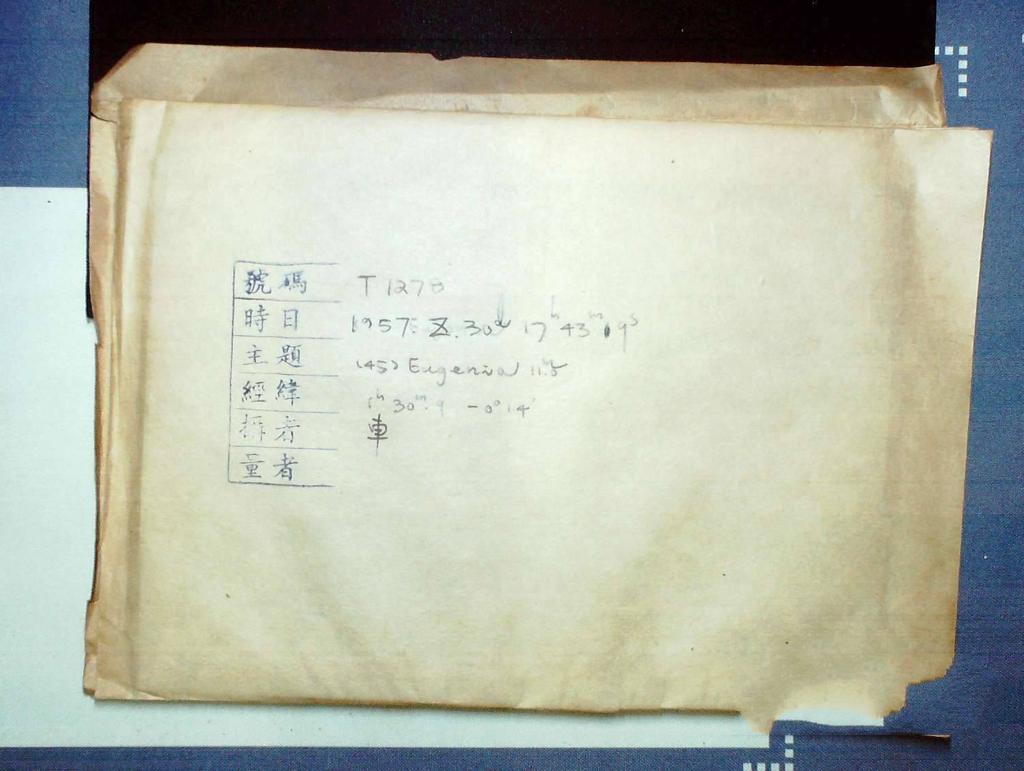 號碼 T 1278
時日 1957. X. 30ᵈ 17ʰ 43ᵐ 19ˢ
主題 (45) Eugenia 11.5
經緯 1ʰ 30ᵐ.9 -0°14'
攝者 車
量者